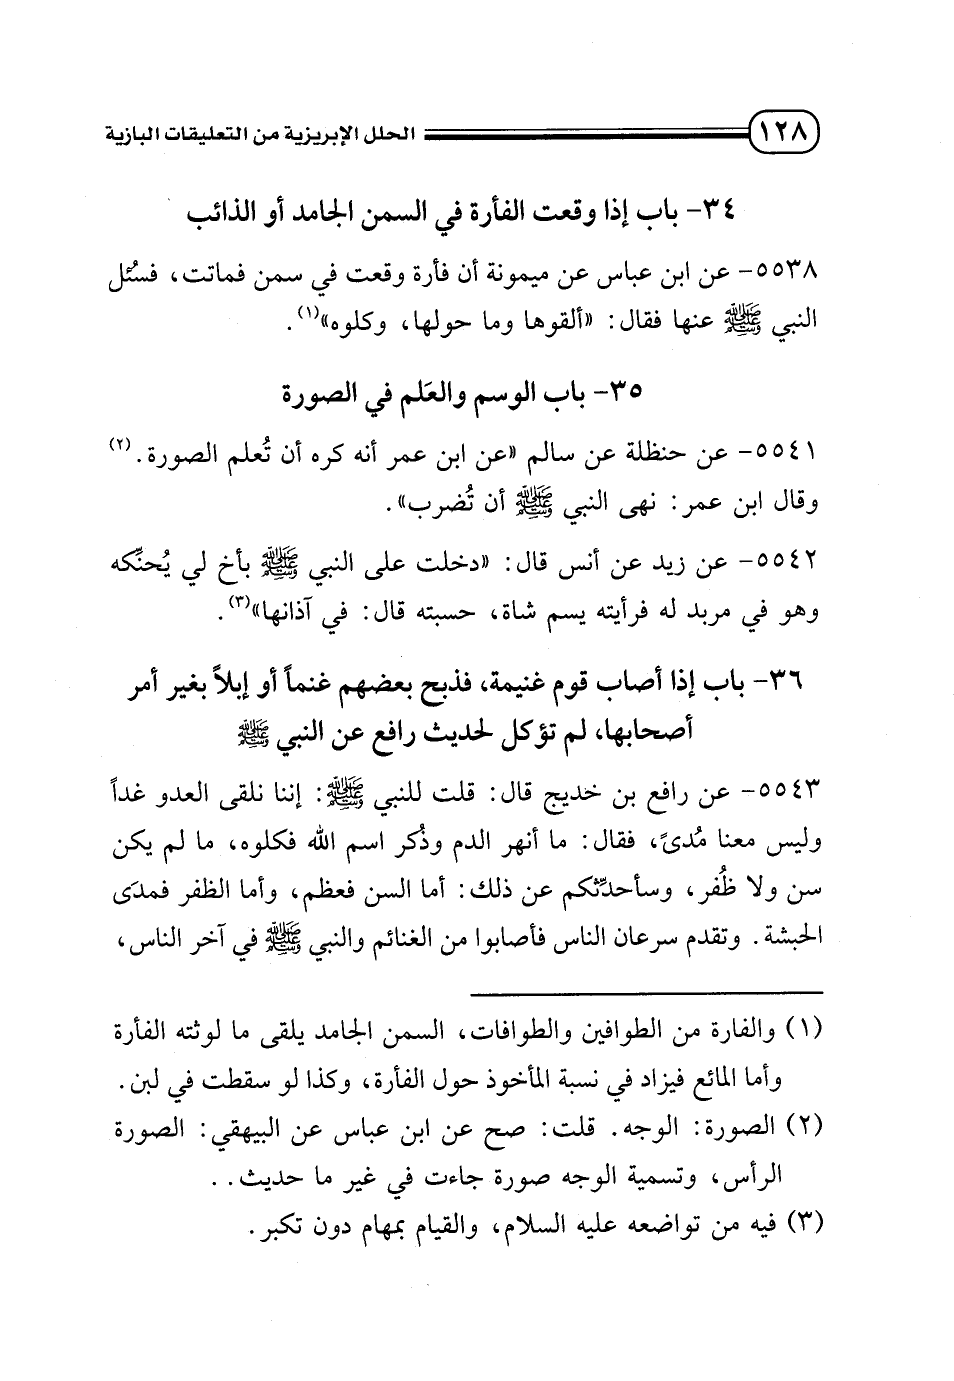 ١٢٨ الحلل الإبريزية من التعليقات البازية
٣٤- باب إذا وقعت الفأرة في السمن الجامد أو الذائب
٥٥٣٨- عن ابن عباس عن ميمونة أن فأرة وقعت في سمن فماتت، فسُئل
النبي ﷺ عنها فقال: «ألقوها وما حولها، وكلوه»(١).
٣٥- باب الوسم والعَلم في الصورة
٥٥٤١- عن حنظلة عن سالم «عن ابن عمر أنه كره أن تُعلم الصورة.(٢)
وقال ابن عمر: نهى النبي ﷺ أن تُضرب».
٥٥٤٢- عن زيد عن أنس قال: «دخلت على النبي ﷺ بأخ لي يُحنّكه
وهو في مربد له فرأيته يسم شاة، حسبته قال: في آذانها»(٣).
٣٦- باب إذا أصاب قوم غنيمة، فذبح بعضهم غنماً أو إبلاً بغير أمر
أصحابها، لم تؤكل لحديث رافع عن النبي ﷺ
٥٥٤٣- عن رافع بن خديج قال: قلت للنبي ﷺ: إننا نلقى العدو غداً
وليس معنا مُدىً، فقال: ما أنهر الدم وذُكر اسم الله فكلوه، ما لم يكن
سن ولا ظُفر، وسأحدّثكم عن ذلك: أما السن فعظم، وأما الظفر فمدَى
الحبشة. وتقدم سرعان الناس فأصابوا من الغنائم والنبي ﷺ في آخر الناس،
(١) والفارة من الطوافين والطوافات، السمن الجامد يلقى ما لوثته الفأرة
وأما المائع فيزاد في نسبة المأخوذ حول الفأرة، وكذا لو سقطت في لبن.
(٢) الصورة: الوجه. قلت: صح عن ابن عباس عن البيهقي: الصورة
الرأس، وتسمية الوجه صورة جاءت في غير ما حديث..
(٣) فيه من تواضعه عليه السلام، والقيام بمهام دون تكبر.